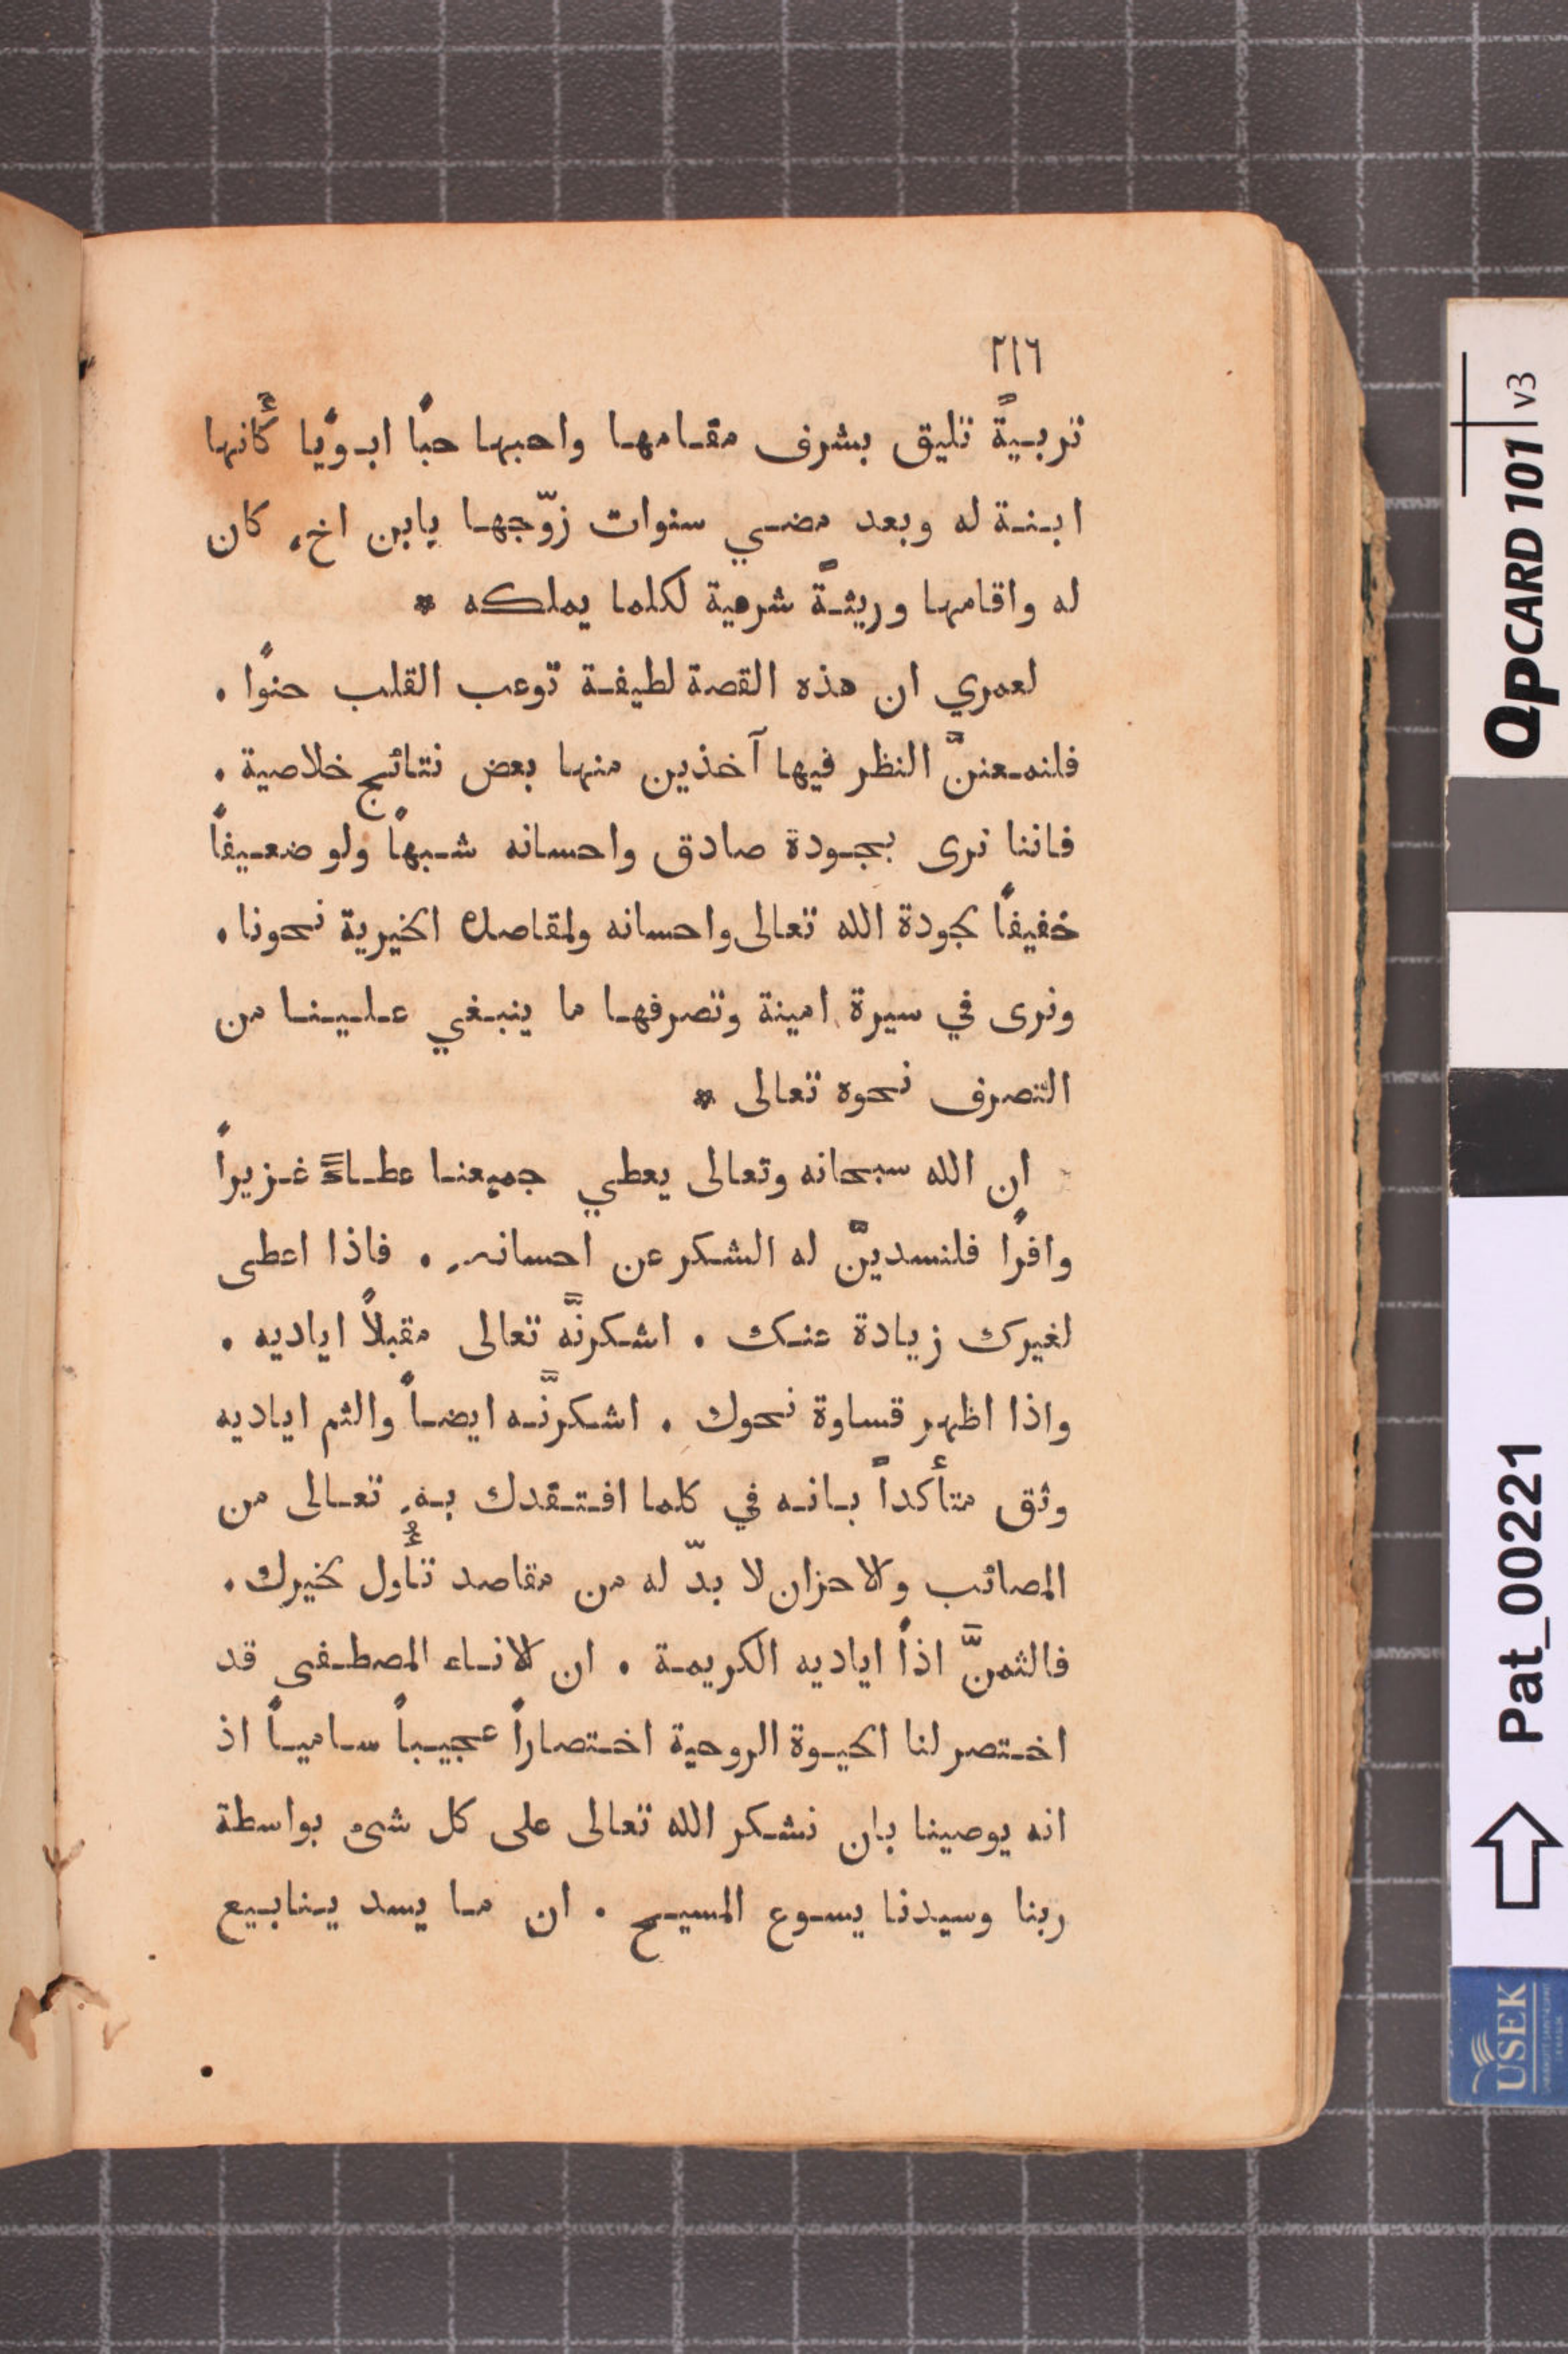 ٢١٦
تربيةً تليق بشرف مقامها واحبها حبًا ابويًا كأنها
ابنة له وبعد مضي سنوات زوّجها بابن اخٍ كان
له واقامها وريثةً شرعية لكلما يملكه *
لعمري ان هذه القصة لطيفة توعب القلب حنوًا .
فلنمعننَّ النظر فيها آخذين منها بعض نتائج خلاصية .
فاننا نرى بجودة صادق واحسانه شبهاً ولو ضعيفاً
خفيفاً لجودة الله تعالى واحسانه ولمقاصده الخيرية نحونا .
ونرى في سيرة امينة وتصرفها ما ينبغي علينا من
التصرف نحوه تعالى *
ان الله سبحانه وتعالى يعطي جميعنا عطاءً غزيراً
وافرًا فلنسدينَّ له الشكر عن احسانهِ . فاذا اعطى
لغيرك زيادة عنك . اشكرنَّه تعالى مقبلاً اياديه .
واذا اظهر قساوة نحوك . اشكرنَّه ايضاً والثم اياديه
وثق متأكداً بانه في كلما افتقدك بهِ تعالى من
المصائب والاحزان لا بدّ له من مقاصد تأُول لخيرك .
فالثمنَّ اذاً اياديه الكريمة . ان الاناء المصطفى قد
اختصر لنا الحيوة الروحية اختصاراً عجيباً سامياً اذ
انه يوصينا بان نشكر الله تعالى على كل شيء بواسطة
ربنا وسيدنا يسوع المسيح . ان ما يسد ينابيع
QPCARD 101 v3
Pat_00221
USEK